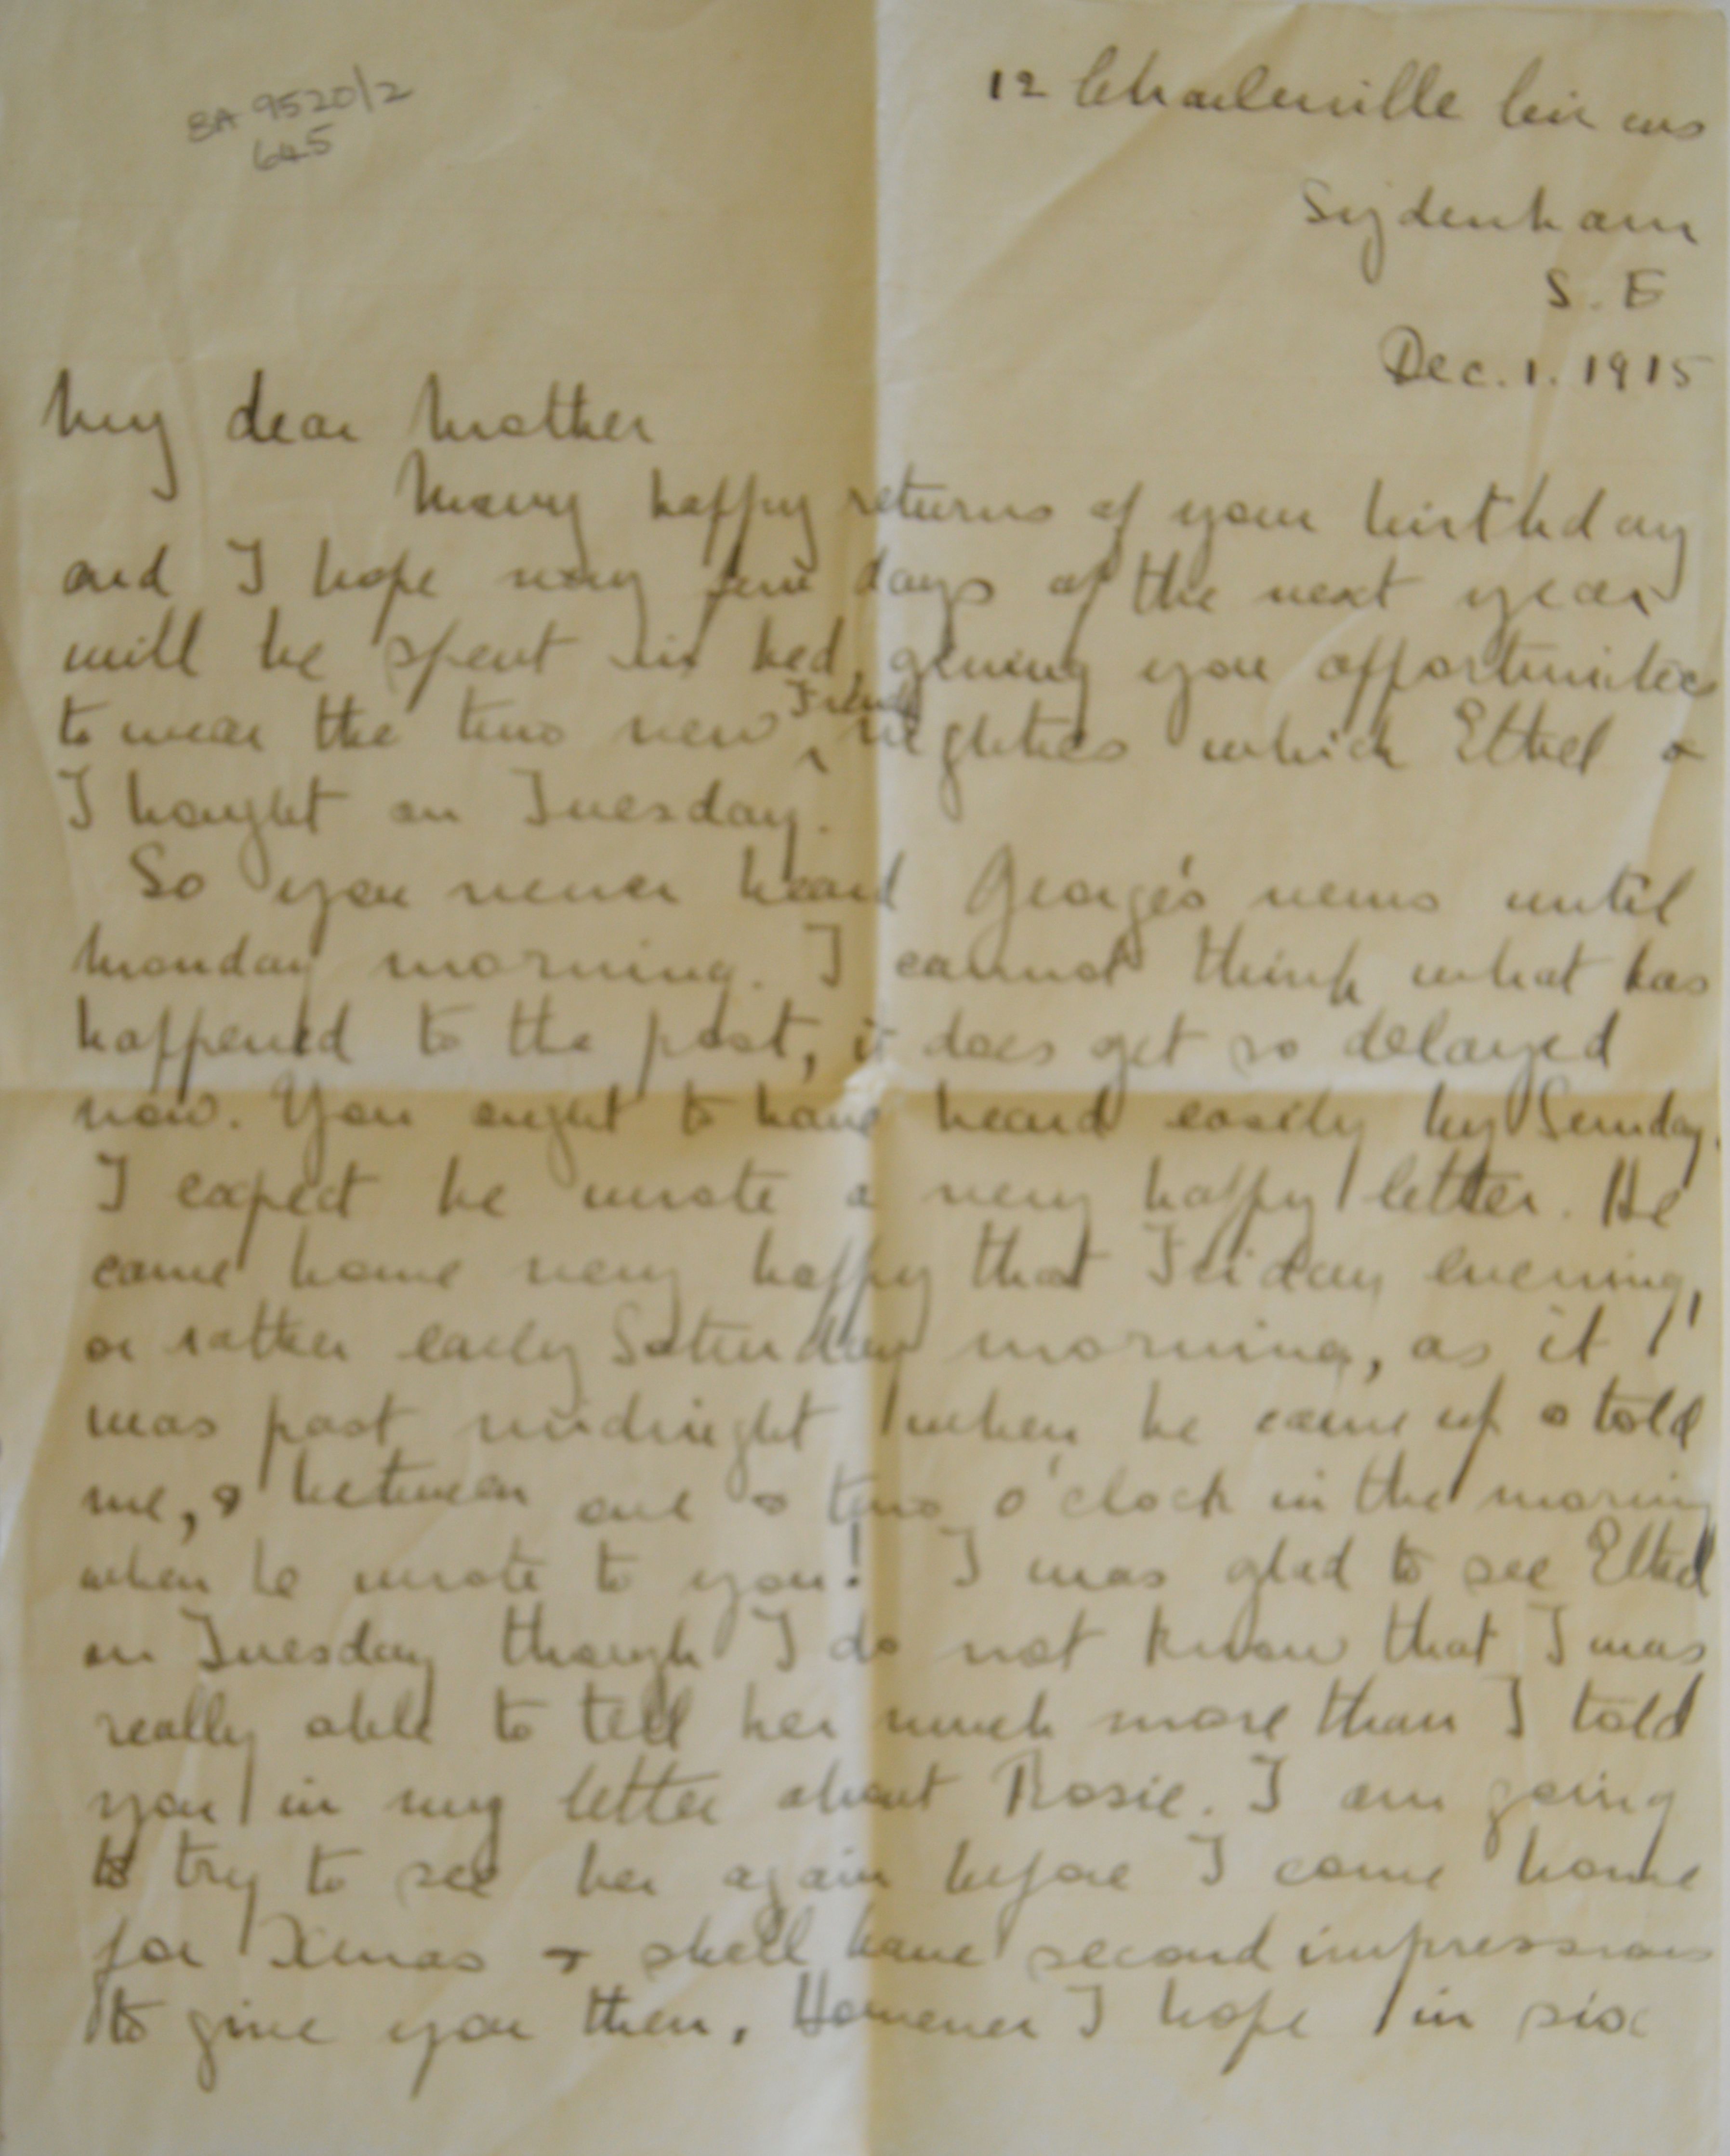 BA 9520/2
645
12 Charleville Circus
Sydenham
S.E
Dec. 1. 1915
My dear Mother
Many happy returns of your birthday
and I hope very few days of the next year
will be spent in bed, giving you opportunities
to wear the two new French nighties which Ethel &
I bought on Tuesday.
So you never heard George's news until
Monday morning. I cannot think what has
happened to the post, it does get so delayed
now. You ought to have heard easily by Sunday.
I expect he wrote a very happy letter. He
came home very happy that Friday evening,
or rather early Saturday morning, as it
was past midnight when he came up & told
me, & between one & two o'clock in the morning
when he wrote to you! I was glad to see Ethel
on Tuesday though I do not know that I was
really able to tell her much more than I told
you in my letter about Rosie. I am going
to try to see her again before I come home
for Xmas & shall have second impressions
to give you then. However I hope in six